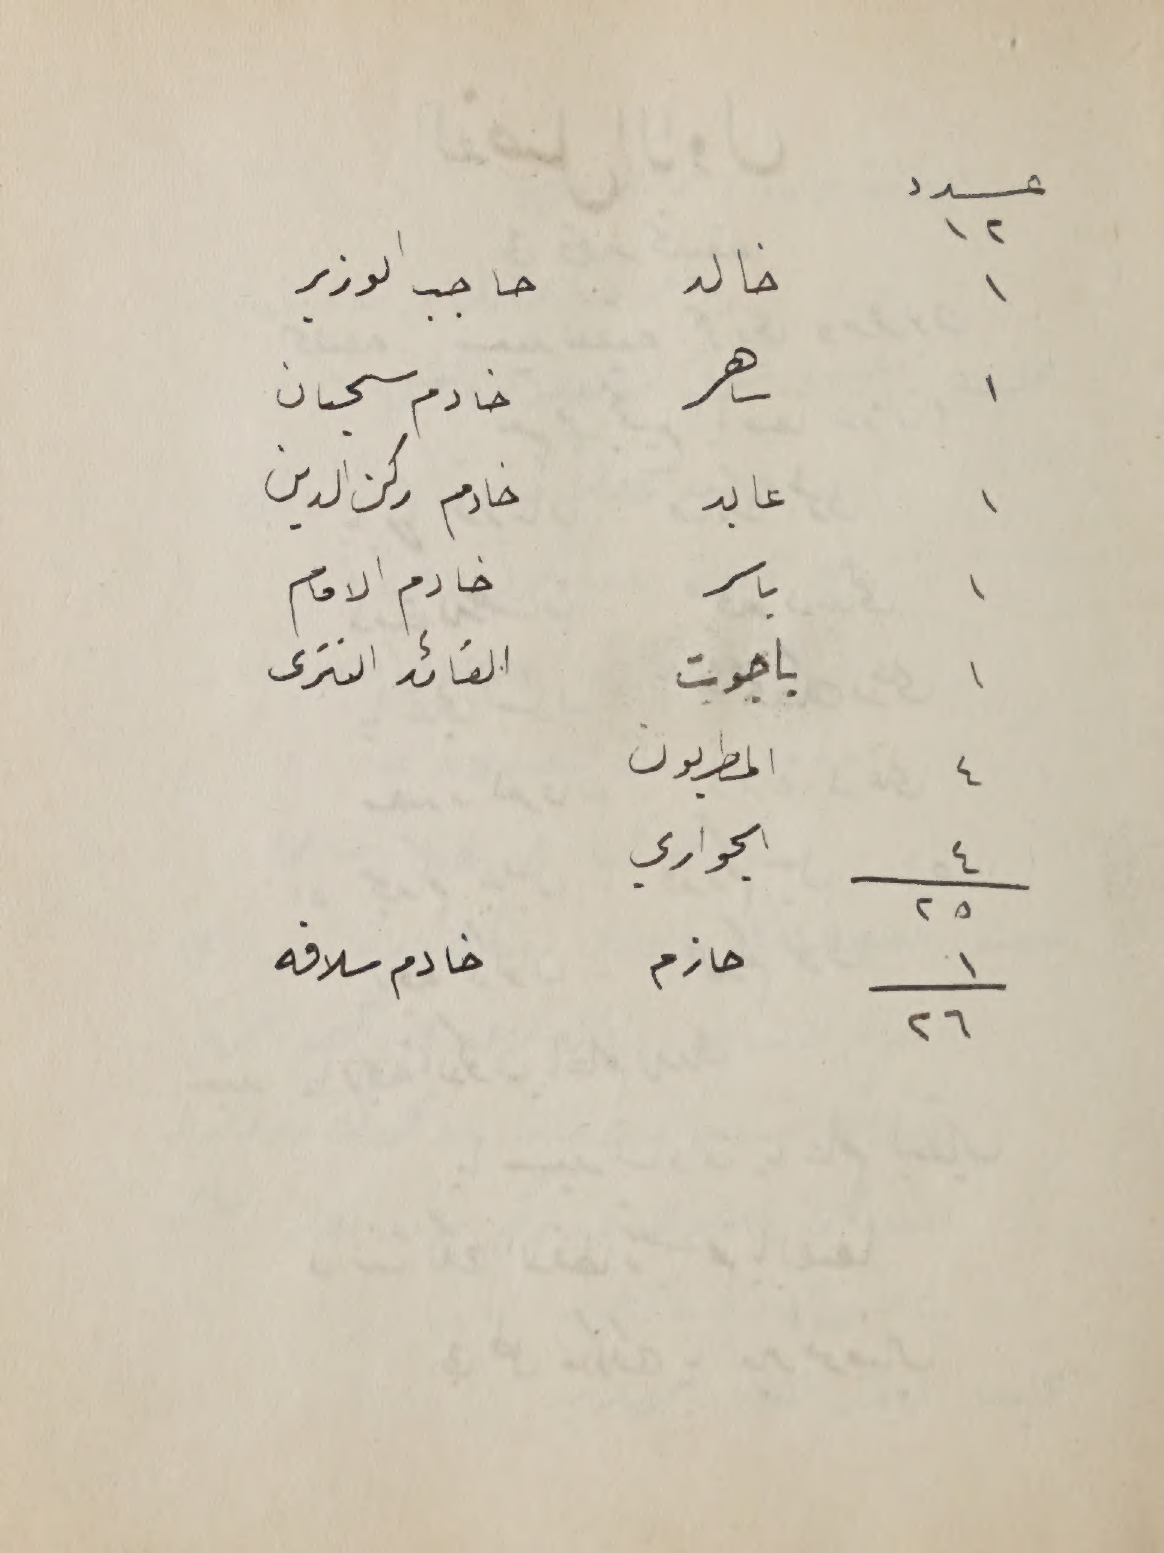 عدد
١٢
١ خالد حاجب الوزير
١ ساهر خادم سحبان
١ عابد خادم ركن الدين
١ ياسر خادم الامام
١ باجوت القائد التترى
٤ المطربون
٤ الجواري
٢٥
١ حازم خادم سلافه
٢٦